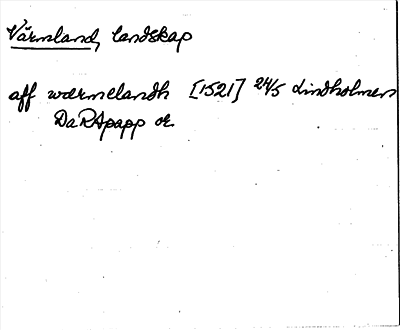 Värmland, landskap
aff wærmelandh [1521] 24/5 Lindholmen
DaRApapp or.